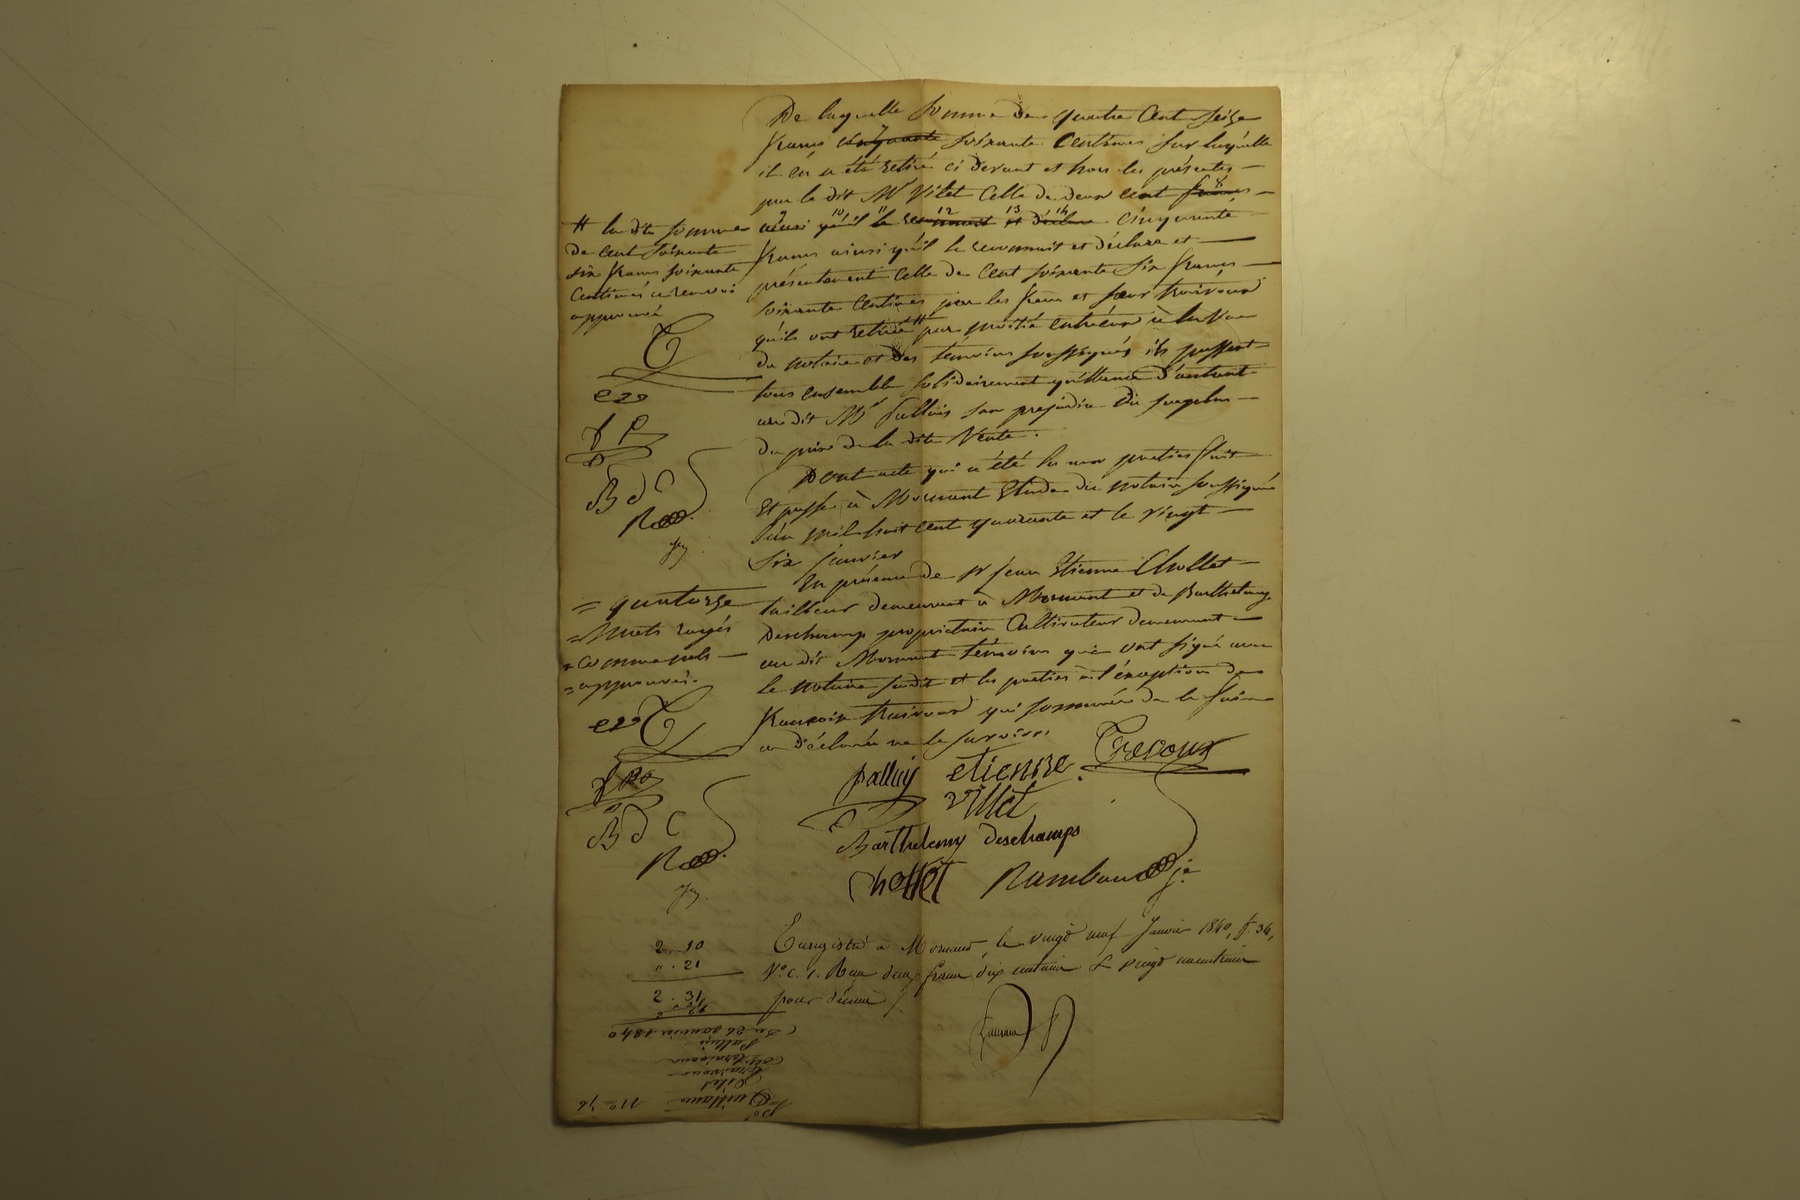 De laquelle somme de quatre cent seize
francs cinquante soixante centimes sur laquelle
il en a été retiré ci devant et hors les présentes
par le dit Mr Vilet celle de deux cent francs
ainsi qu'il le reconnait et déclare cinquante
francs ainsi qu'il le reconnait et déclare et
présentement celle de cent soixante six francs
soixante centimes par les frère et sœur
qu'ils ont retirée # par moitié entr'eux à la vue
du notaire et des témoins soussignés ils passent
tous ensemble solidairement quittance d'autant
au dit Mr Palluis san prejudice du surplus
du prix de la dite vente.
# la dite somme
de cent soixante
six francs soixante
centimes
approuvé
C
ezv
f P
B d C
R
Dont acte qui a été lu aux parties fait
et passé à Mornant Etude du notaire soussigné
l'an mil huit cent quarante et le vingt
six janvier
En présence de Sr Jean Etienne Chollet
tailleur demeurant à Mornant et de Barthelemy
Deschamp propriétaire cultivateur demeurant
au dit Mornant témoins qui ont signé avec
le notaire susdit et les parties à l'éxception de
françoise qui sommée de le faire
a déclaré ne le savoir.
= quatorze
= mots rayés
= comme nuls
= approuvés.
ezv C
B d C
R
palluy etienne Crecoux
villet
Barthelemy deschamps
chollet Rambaud je
Enregistré à Mornant, le vingt neuf Janvier 1840, f. 34,
Vo. c. 1. Reçu deux francs dix centimes & vingt un centimes
pour décime
2.10
". 21
2.31
No 36
Quittance
Vilet
Palluis
Du 26 Janvier 1840